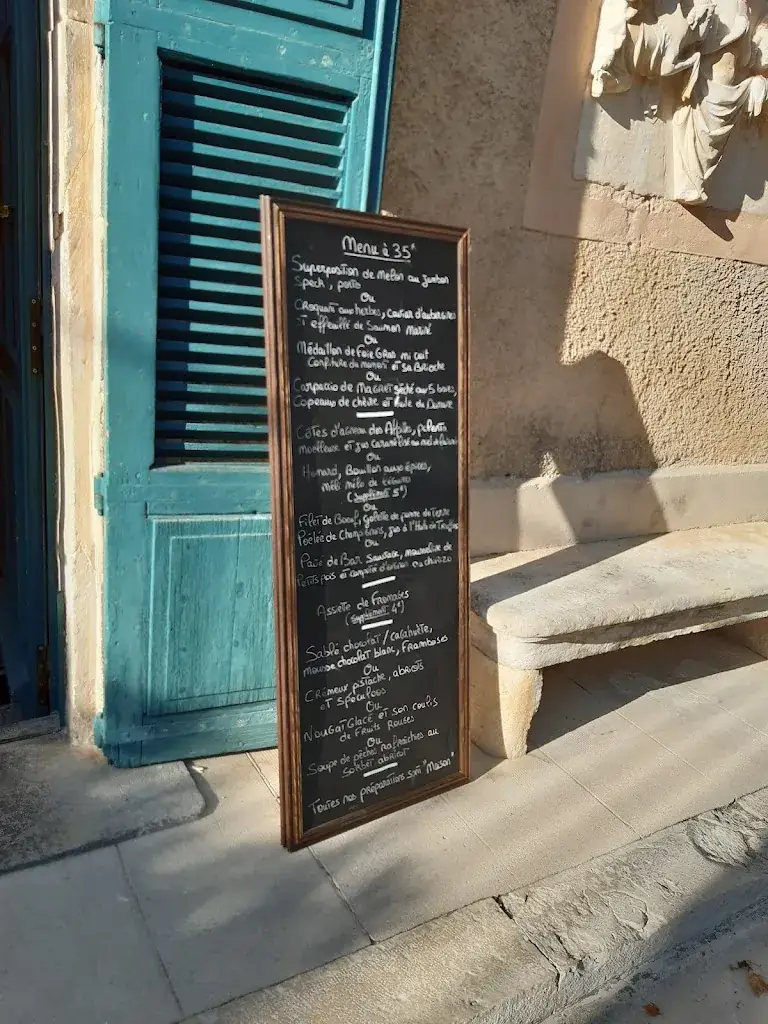 Menu à 35€
Superposition de melon au jambon
Speck, porto
Ou
Croquant aux herbes, caviar d'aubergines
et effeuillé de Saumon mariné
Ou
Médaillon de Foie Gras mi cuit
Confiture du moment et sa Brioche
Ou
Carpaccio de Magret séché aux 5 baies,
Copeaux de chèvre et Huile du Domaine
Côtes d'agneau des Alpilles, polenta
moelleuse et jus caramélisé au miel de
Ou
Homard, Bouillon aux épices,
méli mélo de légumes
(Supplément 5€)
Filet de Boeuf, galette de pomme de Terre
Poêlée de Champignons, jus à l'Huile de Truffes
Ou
Pavé de Bar Sauvage, mousseline de
Petits pois et compotée d'oignons au chorizo
Assiette de Fromages
(Supplément 4€)
Sablé chocolat/cacahuète,
mousse chocolat blanc, Framboises
Ou
Crémeux pistache, abricots
et Spéculoos
Ou
Nougat Glacé et son coulis
de Fruits Rouges
Ou
Soupe de pêches rafraîchies au
Sorbet abricot
Toutes nos préparations sont "Maison"